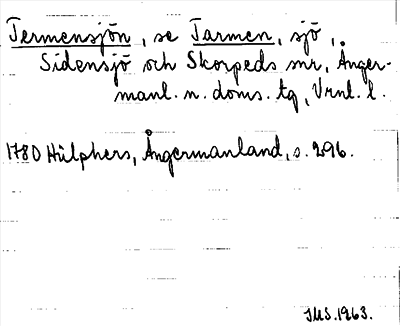 Termensjön, se Tarmen, sjö,
Sidensjö och Skorpeds snr, Ånger-
manl. n. doms. tg, Vrnl. l.
1780 Hülphers, Ångermanland, s. 296.
IMS. 1963.